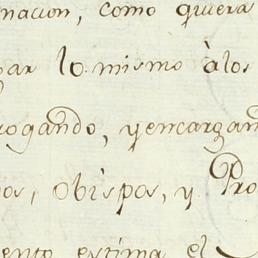 nacion, como quiera
par lo mismo àlos
rogando, yencargan
pos, obispos, y Pro
ento estima el